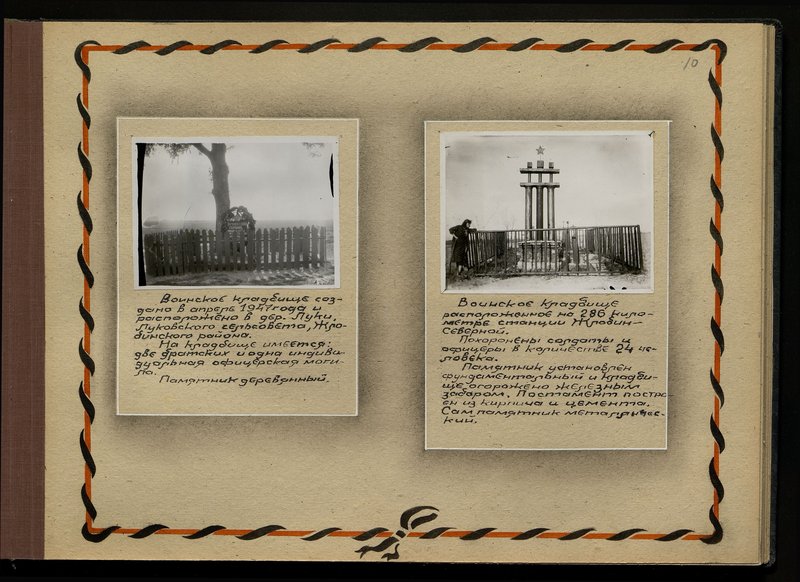 10
Воинское кладбище соз-
дано в апреле 1947 года и
расположено в дер. Луки,
Луковского сельсовета, Жло-
бинского района.
На кладбище имеется:
две братских и одна индиви-
дуальная офицерская моги-
ла.
Памятник деревянный.
Воинское кладбище
расположенное на 286 кило-
метре станции Жлобин-
Северной.
Похоронены солдаты и
офицеры в количестве 24 че-
ловека.
Памятник установлен
фундаментальный и кладби-
ще огорожено железным
забором. Постамент постро-
ен из кирпича и цемента.
Сам памятник металличес-
кий.